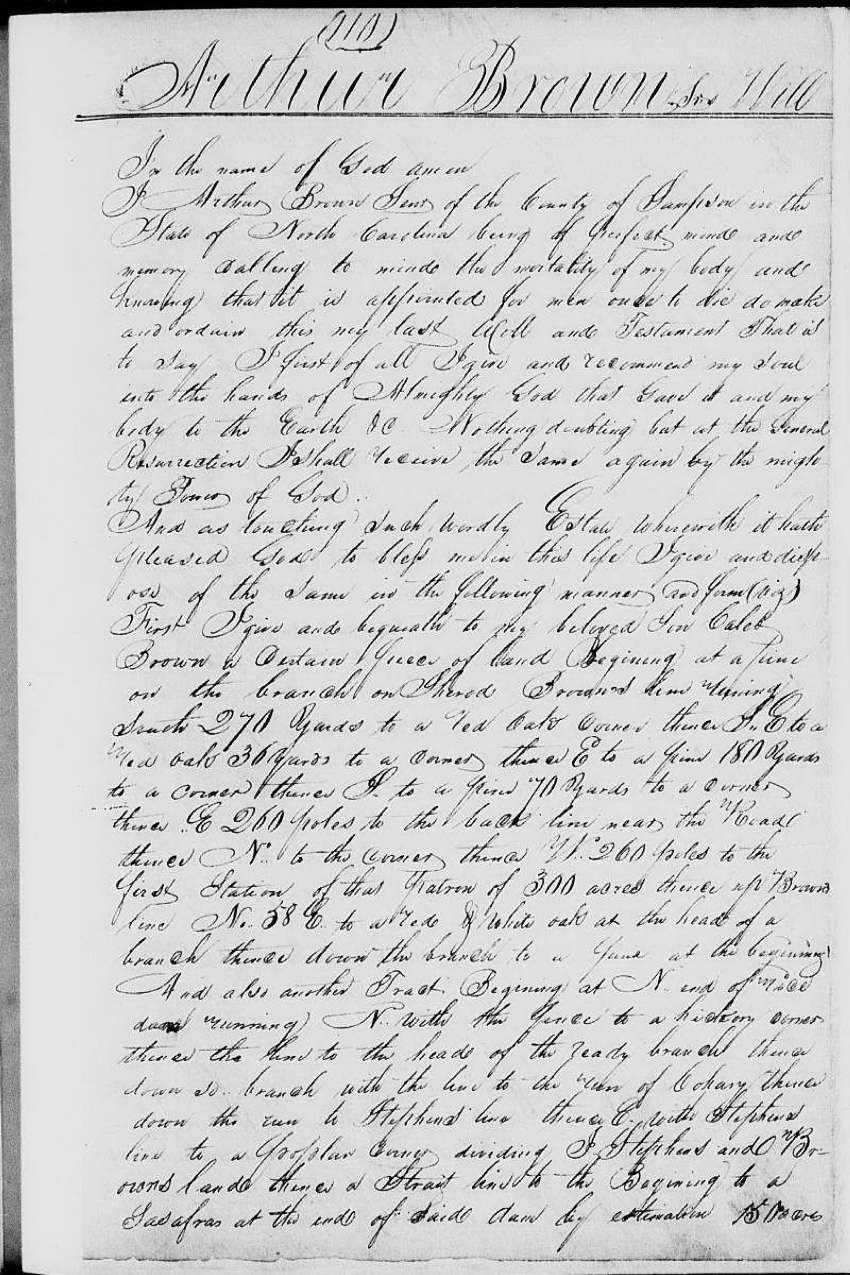 (210)
Arthur Brown Snr Will
In the name of God amen
I Arthur Brown Senr of the County of Sampson in the
State of North Carolina being of perfect minde and
memory calling to minde the mortality of my body and
knowing that it is appointed for men once to die do make
and ordain this my last Will and Testament That is
to say I first of all I give and recommend my Soul
into the hands of Almighty God that Gave it and my
body to the Earth &C Nothing doubting but at the General
Resurrection I Shall receive the Same again by the migh-
ty Power of God.
And as touching Such wordly Estate wherewith it hath
pleased God to bless me in this life I give and disp-
ose of the Same in the following manner and form (viz)
First I give and bequeath to my beloved Son Caleb
Brown a Certain piece of land Begining at a pine
on the branch on Sherod Browns line runing
South 270 Yards to a red oak corner thence S. E to a
red oak 36 yards to a corner thence E to a pine 180 Yards
to a corner thence S. to a pine 70 Yards to a corner
thence E 260 poles to the back line near the Road
thence No. to the corner thence W. 260 poles to the
first Station of that Patron of 300 acres thence up Browns
line No. 58 E. to a red & White oak at the head of a
branch thence down the branch to a pine at the begining
And also another Tract Begining at N. end of rice
dam running N. with the fence to a hickory corner
thence the line to the head of the ready branch thence
down sd. branch with the line to the run of Cohary thence
down the run to Stephens line thence E. with Stephens
line to a Poplar Corner dividing I Stephens and Br-
owns land thence a Strait line to the Begining to a
Sasafras at the end of Said dam by estimation 150 acres